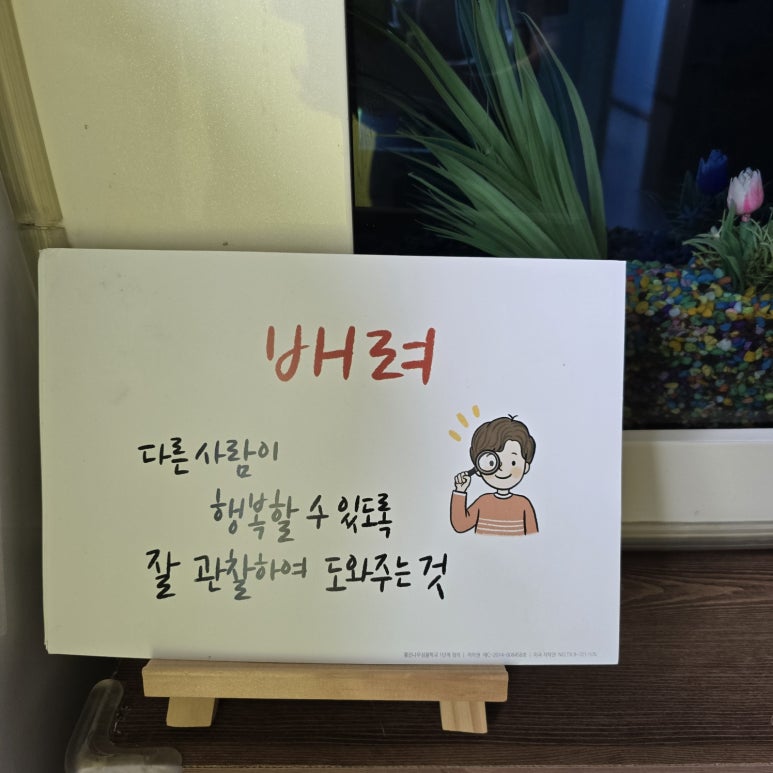 배려
다른 사람이
행복할 수 있도록
잘 관찰하여 도와주는 것